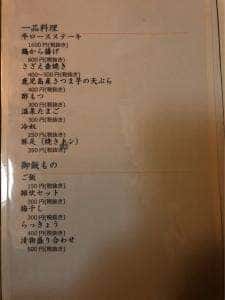 一品料理
牛ロースステーキ
1600円(税抜き)
鶏から揚げ
600円(税抜き)
さざえ壷焼き
400~500円(税抜き)
鹿児島産さつま芋の天ぷら
300円(税抜き)
酢もつ
300円(税抜き)
温泉たまご
300円(税抜き)
冷奴
250円(税抜き)
豚足(焼き
350円(税抜き)
御飯もの
ご飯
150円(税抜き)
雑炊セット
300円(税抜き)
梅干し
300円(税抜き)
らっきょう
400円(税抜き)
漬物盛り合わせ
500円(税抜き)